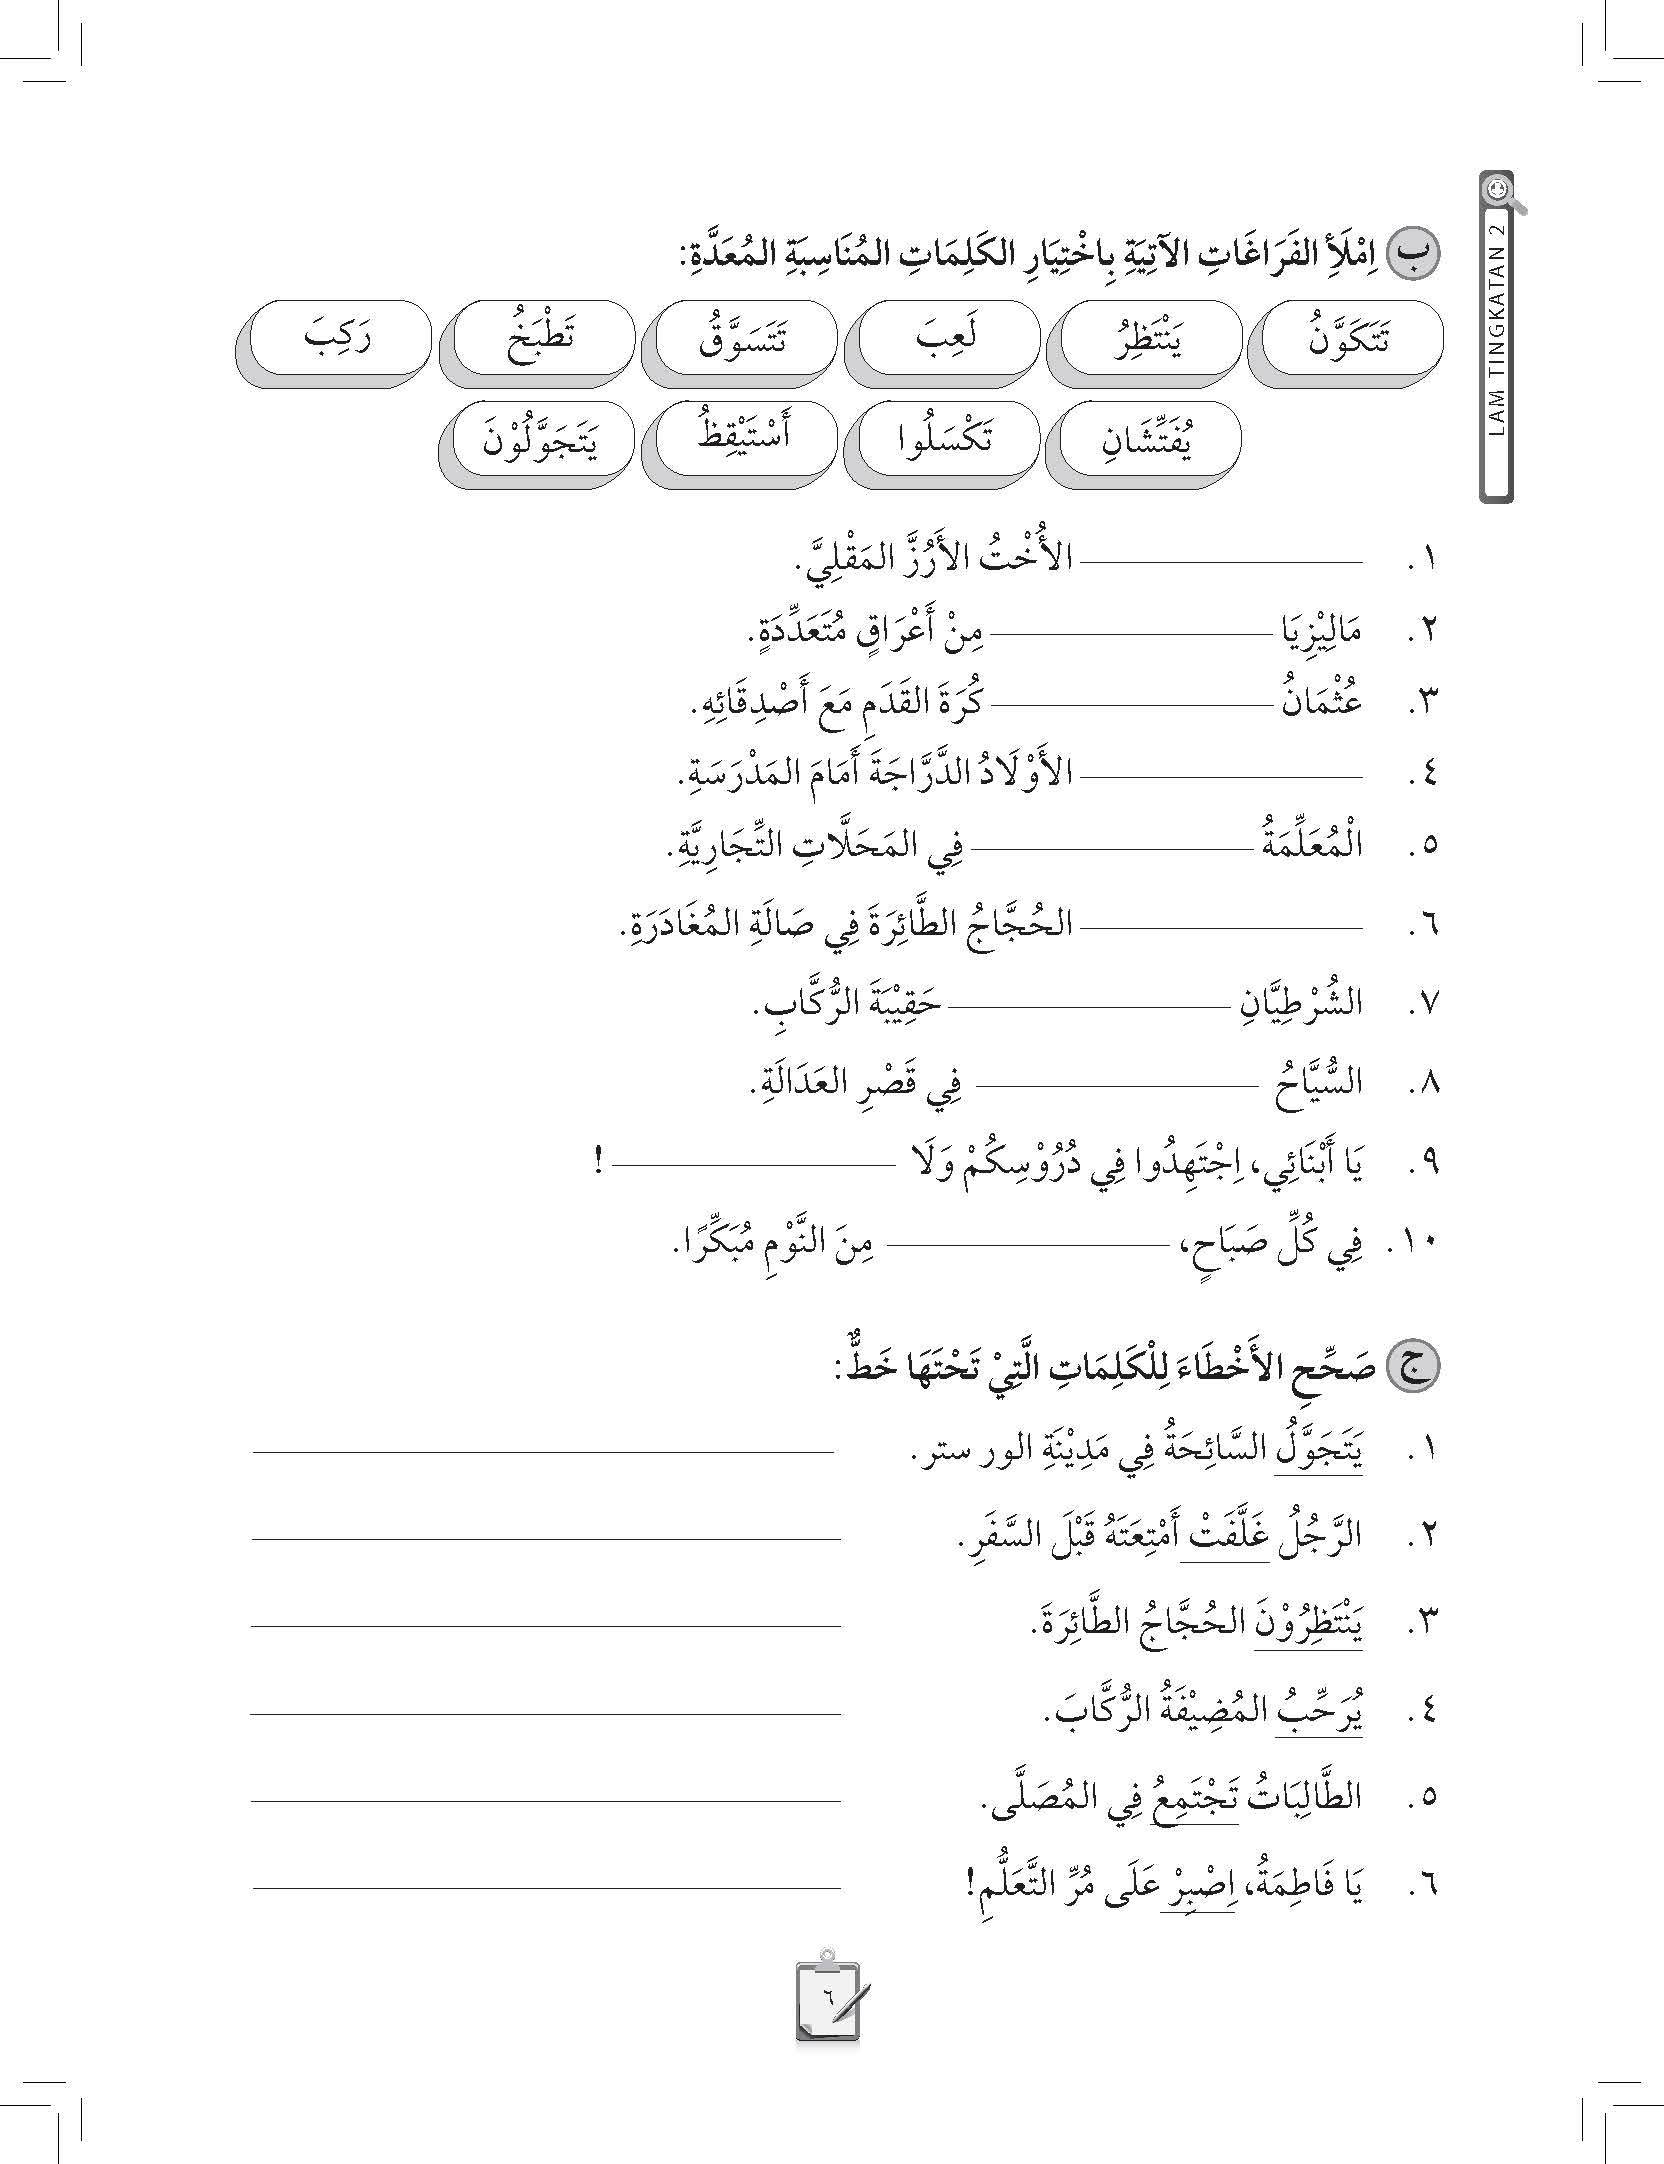 LAM TINGKATAN 2
ب اِمْلَأِ الفَرَاغَاتِ الآتِيَةِ بِاخْتِيَارِ الكَلِمَاتِ المُنَاسِبَةِ المُعَدَّةِ:
تَتَكَوَّنُ يَنْتَظِرُ لَعِبَ تَتَسَوَّقُ تَطْبَخُ رَكِبَ
يُفَتِّشَانِ تَكْسَلُوا أَسْتَيْقِظُ يَتَجَوَّلُوْنَ
١. ــــــــــ الأُخْتُ الأَرُزَّ المَقْلِيَّ.
٢. مَالِيْزِيَا ــــــــــ مِنْ أَعْرَاقٍ مُتَعَدِّدَةٍ.
٣. عُثْمَانُ ــــــــــ كُرَةَ القَدَمِ مَعَ أَصْدِقَائِهِ.
٤. ــــــــــ الأَوْلَادُ الدَّرَّاجَةَ أَمَامَ المَدْرَسَةِ.
٥. الْمُعَلِّمَةُ ــــــــــ فِي المَحَلَّاتِ التِّجَارِيَّةِ.
٦. ــــــــــ الحُجَّاجُ الطَّائِرَةَ فِي صَالَةِ المُغَادَرَةِ.
٧. الشُرْطِيَّانِ ــــــــــ حَقِيْبَةَ الرُّكَّابِ.
٨. السُّيَّاحُ ــــــــــ فِي قَصْرِ العَدَالَةِ.
٩. يَا أَبْنَائِي، اِجْتَهِدُوا فِي دُرُوْسِكُمْ وَلَا ــــــــــ !
١٠. فِي كُلِّ صَبَاحٍ، ــــــــــ مِنَ النَّوْمِ مُبَكِّرًا.
ج صَحِّحِ الأَخْطَاءَ لِلْكَلِمَاتِ الَّتِيْ تَحْتَهَا خَطٌّ:
١. يَتَجَوَّلُ السَّائِحَةُ فِي مَدِيْنَةِ الور ستر.
٢. الرَّجُلُ غَلَّفَتْ أَمْتِعَتَهُ قَبْلَ السَّفَرِ.
٣. يَنْتَظِرُوْنَ الحُجَّاجُ الطَّائِرَةَ.
٤. يُرَحِّبُ المُضِيْفَةُ الرُّكَّابَ.
٥. الطَّالِبَاتُ تَجْتَمِعُ فِي المُصَلَّى.
٦. يَا فَاطِمَةُ، اِصْبِرْ عَلَى مُرِّ التَّعَلُّمِ!
٦